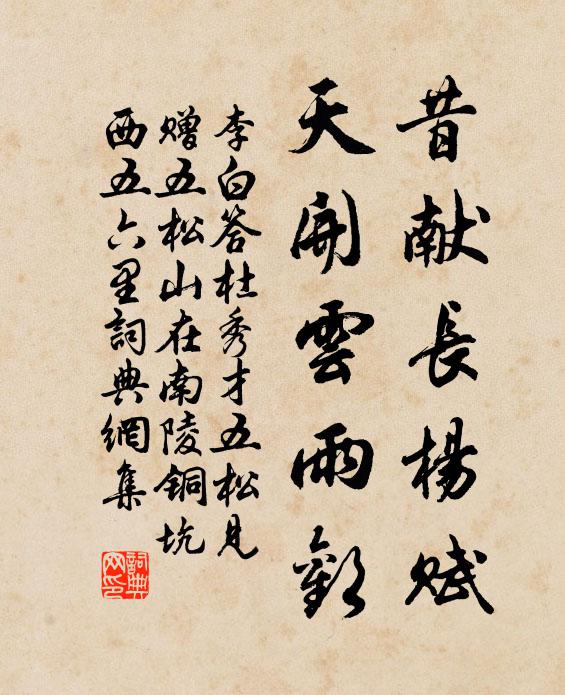 昔献長楊賦
天開雲雨歡
李白答杜秀才五松見
贈五松山在南陵銅坑
西五六里詞典網集
詞典網印